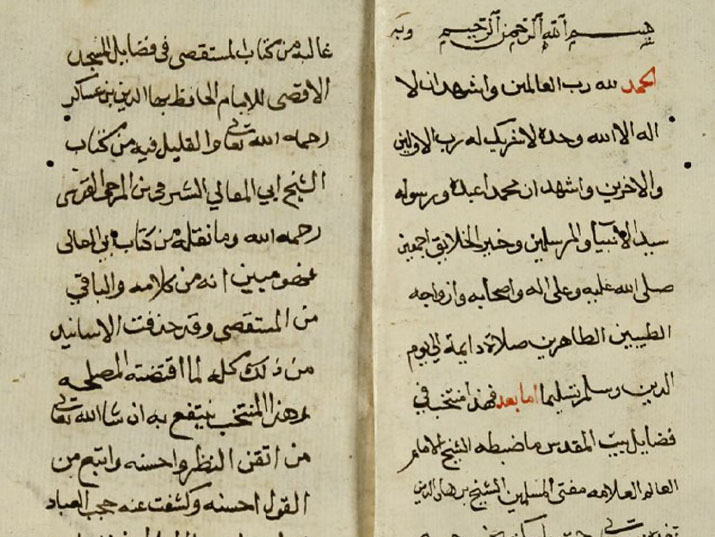 بسم الله الرحمن الرحيم وبه
الحمد لله رب العالمين واشهد ان لا
اله الا الله وحده لا شريك له رب الاولين
والاخرين واشهد ان محمدا عبده ورسوله
سيد الانبيا والمرسلين وخير الخلايق اجمعين
صلى الله عليه وعلى اله واصحابه وازواجه
الطيبين الطاهرين صلاة دايمة الى يوم
الدين وسلم تسليما اما بعد فهذا منتخب في
فضايل بيت المقدس ما ضبطه الشيخ الامام
العالم العلامه مفتى المسلمين الشيخ برهان الدين
غالبه من كتاب المستقصى فى فضايل المسجد
الاقصى للامام الحافظ بها الدين بن عساكر
رحمه الله تعالى والقليل فيه من كتاب
الشيخ ابي المعالي المشرف بن المرجى القدسى
رحمه الله وما نقلته من كتاب ابي المعالى
انه من كلامه والباقي
من المستقصى وقد حذفت الاسانيد
من ذلك كله لما اقتضته المصلحه
وهذا المنتخب ينتفع به ان شا الله تعالى
من اتقن النظر واحسنه واتبع من
القول احسنه وكشفت عنه حجب العباد